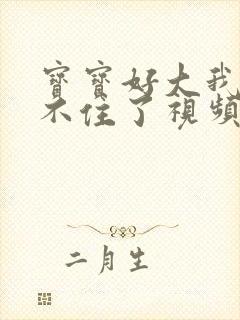 寶寶好大我
不住了視頻
二月生